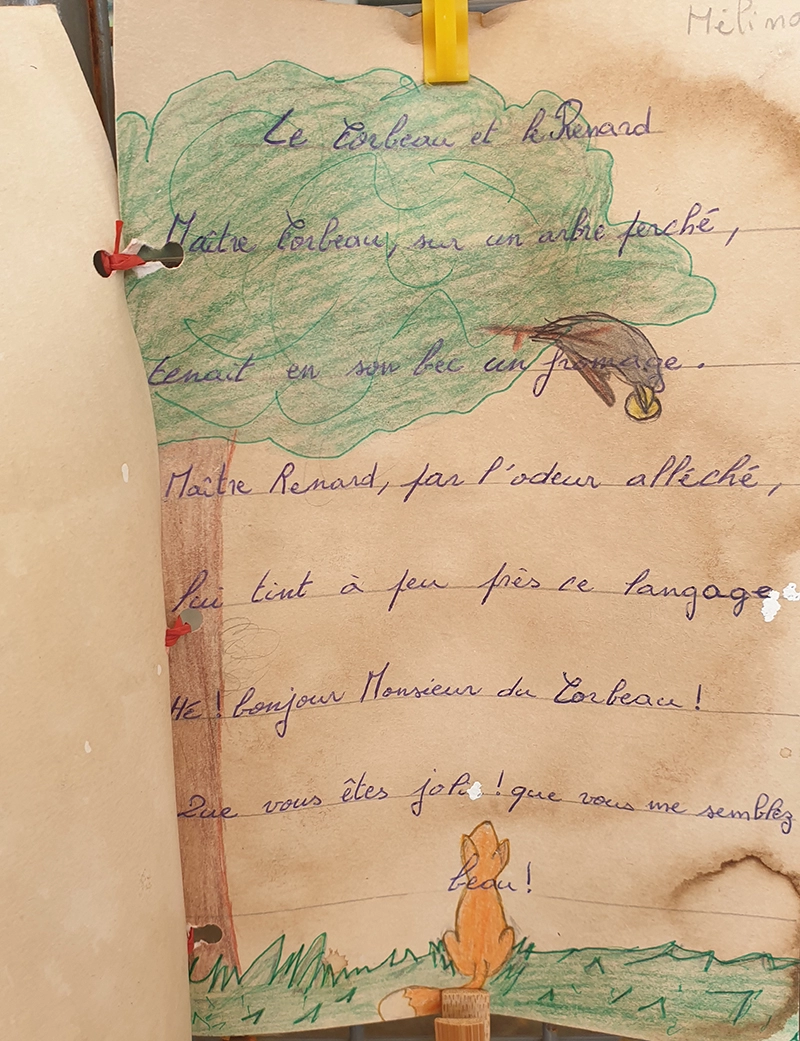 Mélina
Le Corbeau et le Renard
Maître Corbeau, sur un arbre perché,
tenait en son bec un fromage.
Maître Renard, par l'odeur alléché,
lui tint à peu près ce langage
Hé ! bonjour Monsieur du Corbeau !
Que vous êtes joli ! que vous me semblez
beau !